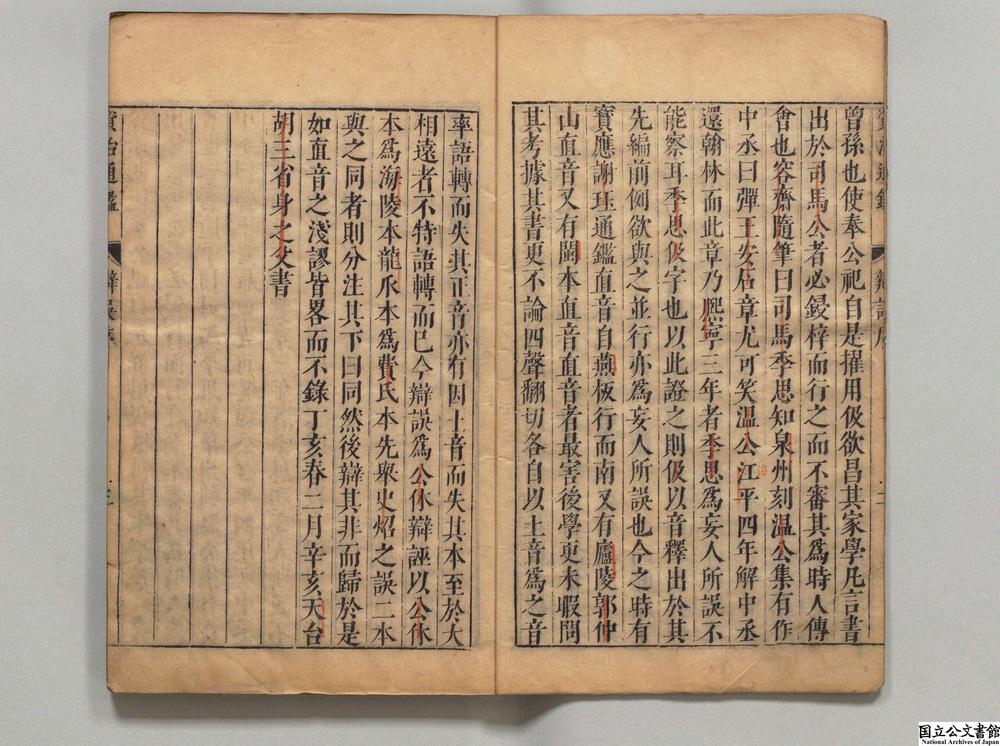 曾孫也使奉公祀自是擢用伋欲昌其家學凡言書
出於司馬公者必鋟梓而行之而不審其爲時人傳
會也容齋隨筆曰司馬季思知泉州刻溫公集有作
中丞曰彈王安石章尤可笑溫公江平四年解中丞
還翰林而此章乃熈寧三年者季思爲妄人所誤不
能察耳季思伋字也以此證之則伋以音釋出於其
先編前例欲與之並行亦爲妄人所誤也今之時有
寶應謝珏通鑑直音自燕板行而南又有廬陵郭仲
山直音又有閩本直音直音者最害後學更未暇問
其考據其書更不論四聲翻切各自以土音爲之音
率語轉而失其正音亦有因土音而失其本至於大
相遠者不特語轉而已今辯誤爲公休辯誣以公休
本爲海陵本龍爪本爲費氏本先舉史炤之誤二本
與之同者則分注其下曰同然後辯其非而歸於是
如直音之淺謬皆畧而不錄丁亥春二月辛亥天台
胡三省身之父書
資治通鑑 辯誤序 三
国立公文書館
National Archives of Japan